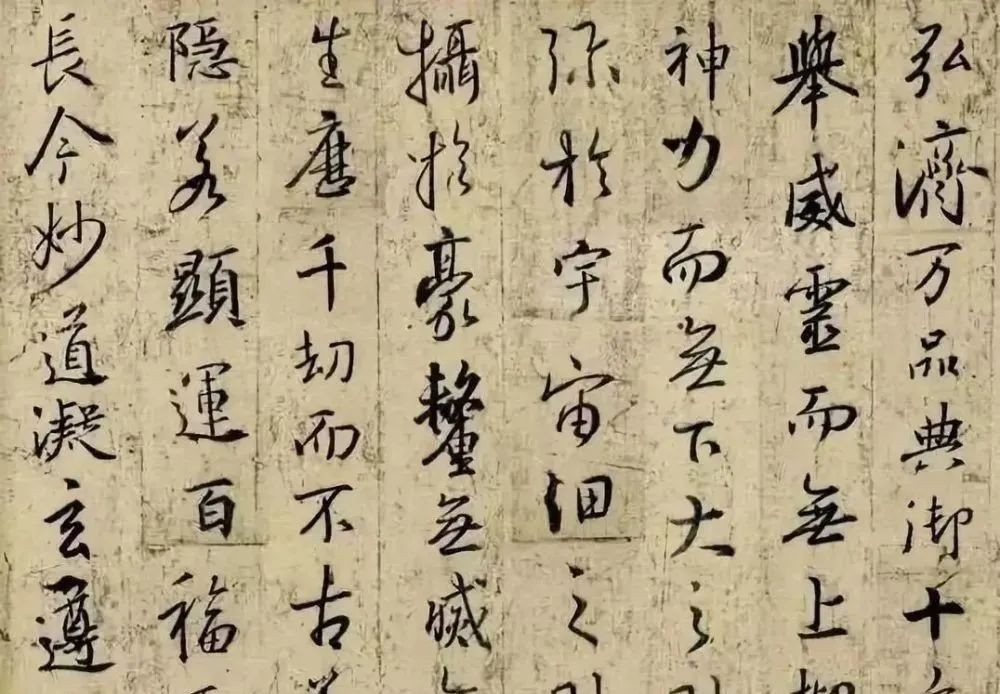 弘濟万品典御十
舉威靈而無上
神力而無下大之
弥於宇宙細之
攝於豪釐無滅
生歷千劫而不古
隐若顯運百福
長今妙道凝玄遵